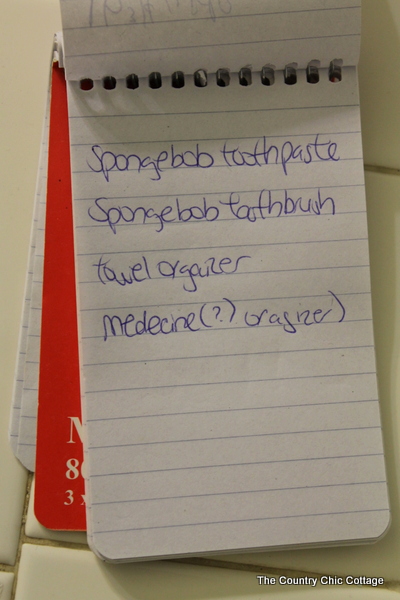 Spongebob toothpaste
Spongebob toothbrush
towel orgaizer
medecine(?) oragizer)
M
80
3 x
The Country Chic Cottage